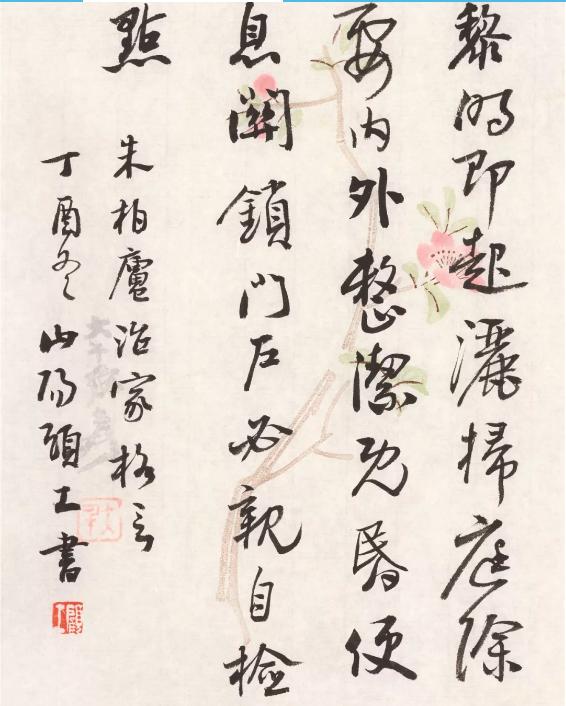 黎明即起灑掃庭除
要内外整潔既昏便
息關鎖門户必親自檢
點
朱柏廬治家格言
丁酉冬山陽顧工書